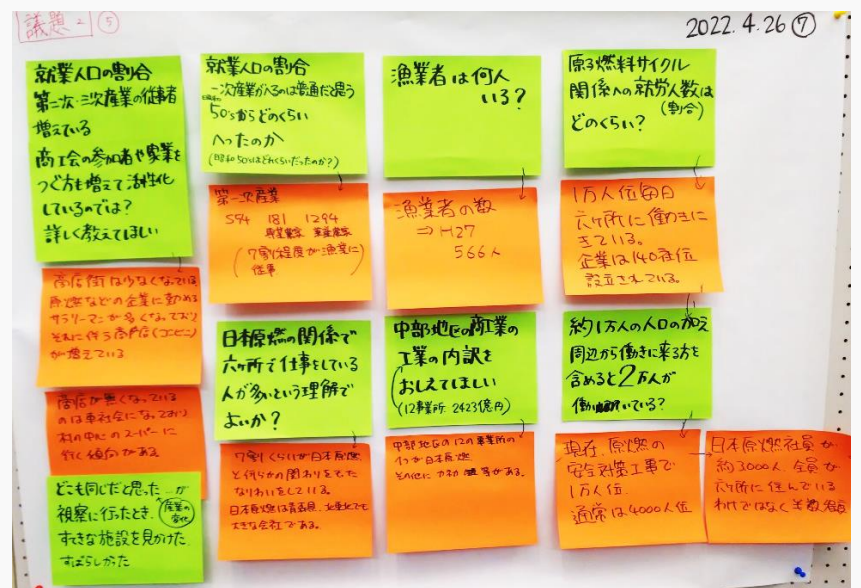 議題2 ⑤
2022.4.26 ⑦
就業人口の割合
第二次・三次産業の従事者
増えている
商工会の参加者や家業を
つぐ方も増えて活性化
しているのでは?
詳しく教えてほしい
商店街は少なくなっている
原燃などの企業に勤める
サラリーマンが多くなっており
それに伴う商店(コンビニ)
が増えている
商店が無くなっている
のは車社会になっており
村の中心のスーパーに
行く傾向がある
どこも同じだと思った…が
視察に行ったとき、
産業の
変化
すてきな施設を見かけた
すばらしかった
就業人口の割合
一次産業がへるのは普通だと思う
昭和
50'sからどのくらい
へったのか
(昭和50はどれくらいだったのか?)
第一次産業
594 181 1294
専業農家 兼業農家
(7割程度が漁業に
従事)
日本原燃の関係で
六ヶ所で仕事をしている
人が多いという理解で
よいか?
7割くらいが日本原燃
と何らかの関わりをもった
なりわいをしている。
日本原燃は青森県、北東北でも
大きな会社である。
漁業者は何人
いる?
漁業者の数
⇒ H27
566人
中部地区の商工業の
工業の内訳を
おしえてほしい
(12事業所 2423億円)
中部地区の12の事業所の
1つが日本原燃
その他に 等がある。
原子燃料サイクル
関係への就労人数は
(割合)
どのくらい?
1万人位毎日
六ヶ所に働きに
きている。
企業は140社位
設立されている。
約1万人の人口の加え
周辺から働きに来る方を
含めると2万人が
働いている?
現在、原燃の
安全対策工事で
1万人位
通常は4000人位
日本原燃社員が
約3000人、全員が
六ヶ所に住んでいる
わけではなく半数程度